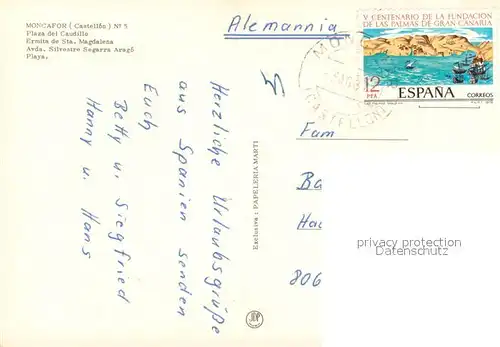 MONCAFOR ( Castellón ) Nº 3
Plaza del Caudillo
Ermita de Sta. Magdalena
Avda. Silvestre Segarra Aragó
Playa.
Alemannia
V CENTENARIO DE LA FUNDACION
DE LAS PALMAS DE GRAN CANARIA
12
PTA
ESPAÑA
CORREOS
Herzliche Urlaubsgrüße
aus Spanien senden
Euch
Betty u. Siegfried
Hanny u. Hans
Exclusiva : PAPELERIA MARTI
Fam
Ba
Ha
806
privacy protection
www.ansichtskartenversand.com